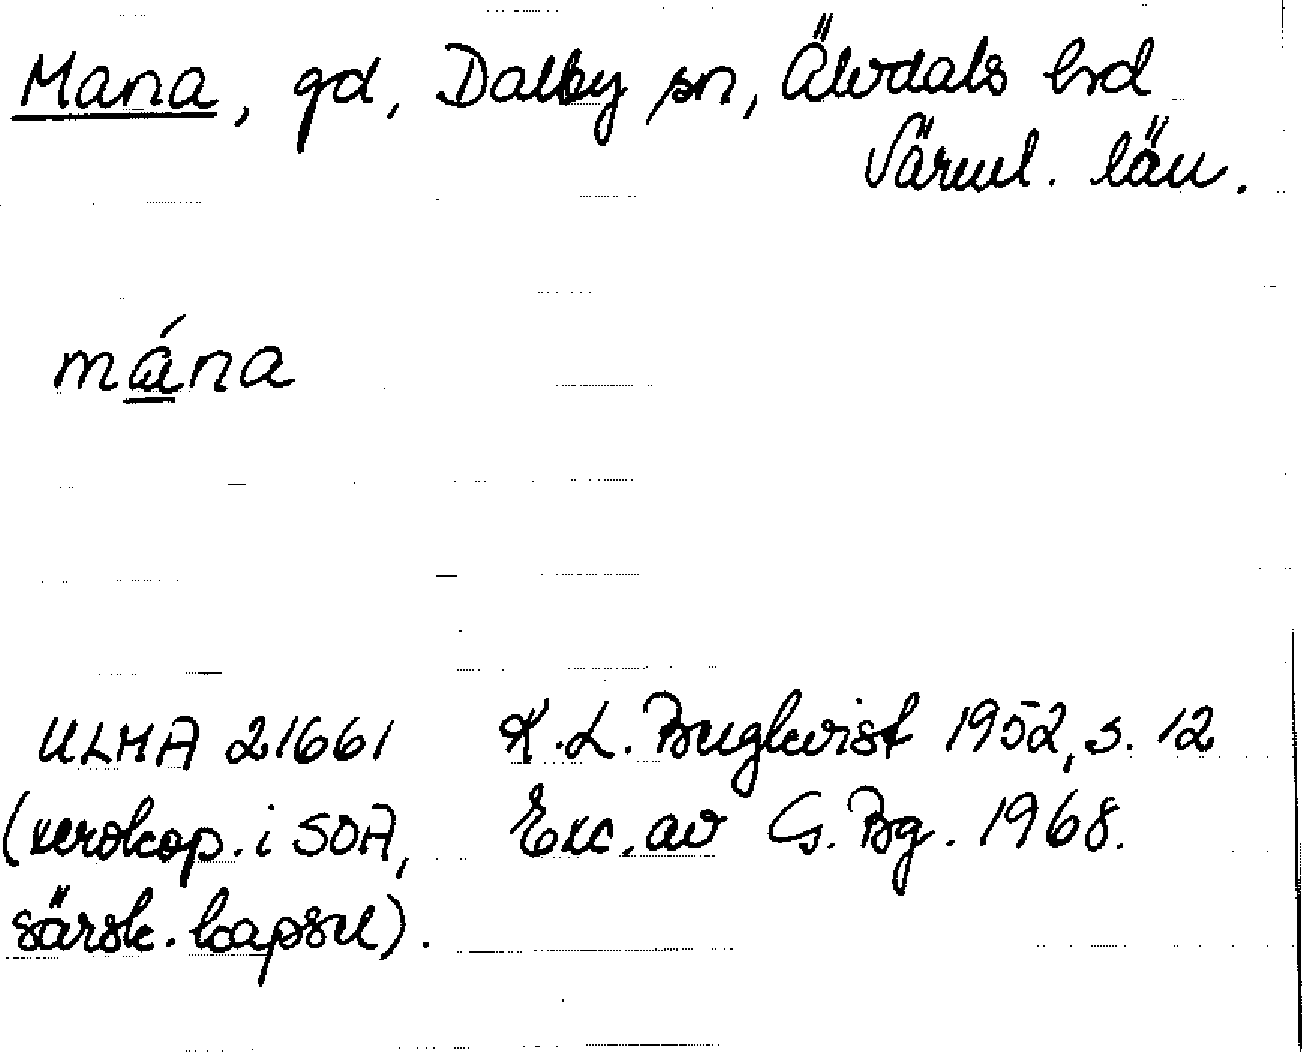 Mana, gd, Dalby sn, Älvdals hrd
Värml. län.
mána
ULMA 21661 K.L. Bugkvist 1952, s. 12
(xerokop. i SOA, Exc. av G. Bg. 1968.
särsk. kapsel).